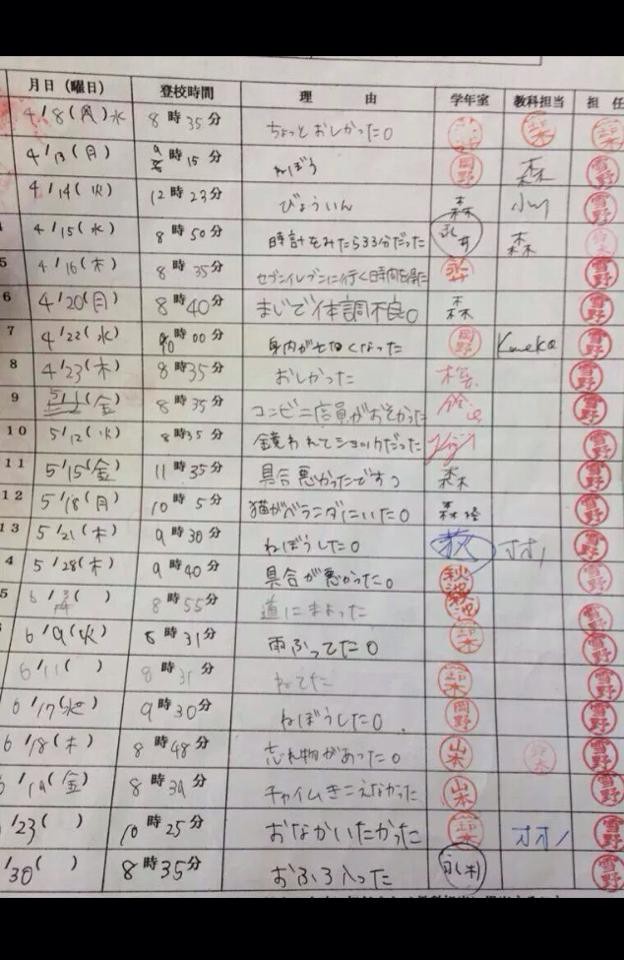 月日（曜日） 登校時間 理由 学年室 教科担当 担任
4/8(水 8時35分 ちょっとおしかった。
4/13(月) 9時15分 ねぼう 岡野 森 雪野
4/14(火) 12時23分 びょういん 森 小川 雪野
4/15(水) 8時50分 時計をみたら33分だった 永井 森
5 4/16(木) 8時35分 セブンイレブンに行く時間を 雪野
6 4/20(月) 8時40分 まじで体調不良。 森 雪野
7 4/22(水) 10時00分 身内が亡くなった 岡野 雪野
8 4/23(木) 8時35分 おしかった 雪野
9 (金) 8時35分 コンビニ店員がおそかった 雪野
10 5/12(火) 8時35分 鏡われてショックだった 雪野
11 5/15(金) 11時35分 具合悪かったです 森 雪野
12 5/18(月) 10時5分 猫がベランダにいた。 森 雪野
13 5/21(木) 9時30分 ねぼうした。 荻 オオノ 雪野
4 5/28(木) 9時40分 具合が悪かった。 雪野
5 6/ ( ) 8時55分 道にまよった 雪野
6/9(火) 8時31分 雨ふってた。 雪野
6/11( ) 8時31分 ねてた 雪野
6/17(水) 9時30分 ねぼうした。 岡野 雪野
6/18(木) 8時48分 忘れ物があった。 山本 雪野
6/19(金) 8時39分 チャイムきこえなかった 山本 雪野
/23( ) 10時25分 おなかいたかった オオノ 雪野
/30( ) 8時35分 おふろ入った 雪野